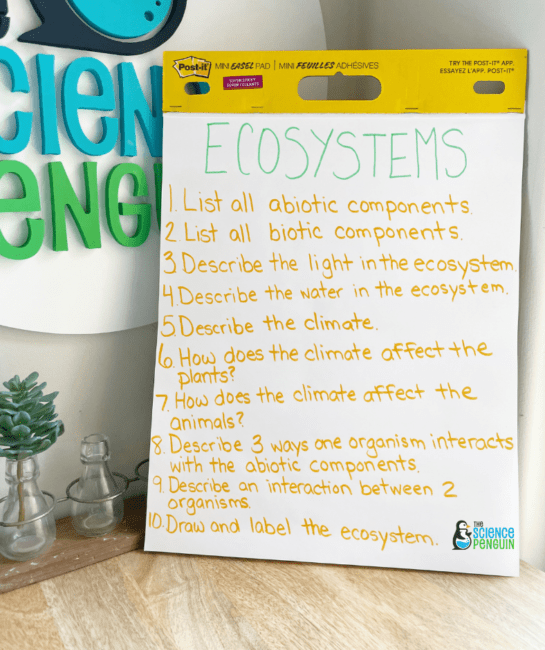 CIEN
ENGU
Post-it MINI EASEL PAD | MINI FEUILLES ADHÉSIVES
TRY THE POST-IT® APP.
ESSAYEZ L'APP. POST-IT®
ECOSYSTEMS
1. List all abiotic components.
2 List all biotic components.
3. Describe the light in the ecosystem.
4. Describe the water in the ecosystem.
5. Describe the climate.
6. How does the climate affect the
plants?
7. How does the climate affect the
animals?
8. Describe 3 ways one organism interacts
with the abiotic components.
9. Describe an interaction between 2
organisms.
10. Draw and label the ecosystem.
THE
SCIENCE
PENGUIN